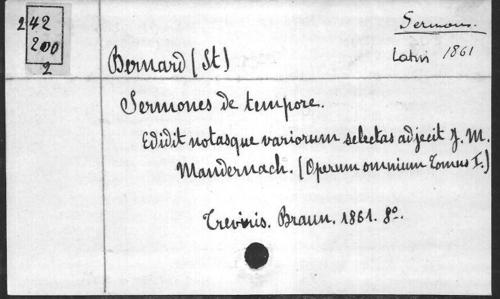 242
200
2
Sermons.
Latin 1861
Bernard (St)
Sermones de tempore.
Edidit notasque variorum selectas adjecit J. M.
Mandernach. (Operum omnium Tomus I.)
Treviris. Braun. 1861. 8º.